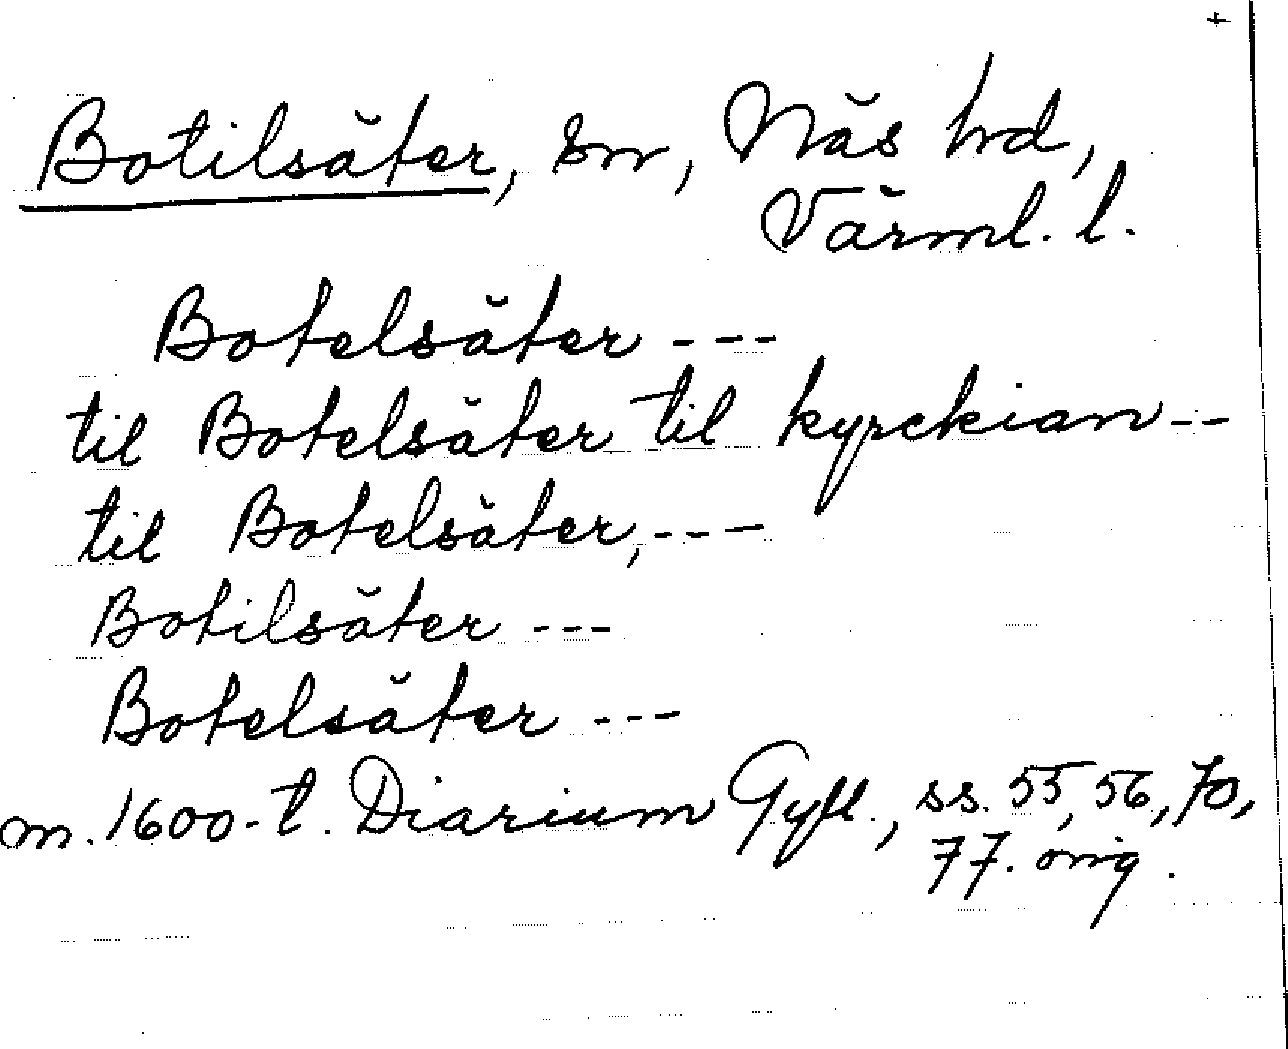 +
Botilsäter, sn, Näs hd,
Värml. l.
Botelsäter ---
til Botelsäter til kyrckian --
til Botelsäter, ---
Botilsäter ---
Botelsäter ---
m. 1600-t. Diarium Gyll., ss. 55, 56, 70,
77. orig.